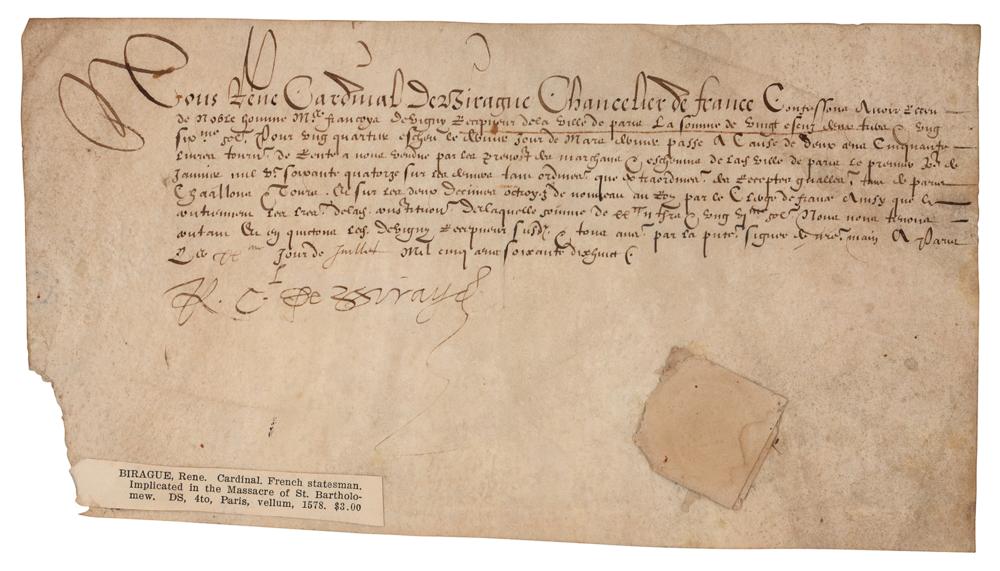 Nous Rene Cardinal De Birague Chancelier de france Confessons Avoir Receu
de Noble homme Me francoys de Vigny Recepveur de la ville de paris La somme de vingt
Pour ung quartier escheu le jour de Mars passe A Cause de deux cens Cinquante
livres tourn. de Rente a nous vendue par les prevost des marchans & eschevins de lad. ville de paris le premier jor de
Janvier mil vc soixante quatorze sur les que extraordiner. des Receptes tant de paris
Chaallons Tours. Et sur les deux decimes octroyez de nouveau au Roy par le Clerge de france Ainsy que le
contiennent les lres de lad. constitution De laquelle somme de Nous nous tenons
contant Et en quictons led. de Vigny Recepveur susd. & tous aues par la pnte. signee de nre. main A Paris
Le Jour de Juillet Mil cinq cens soixante dixhuict
R. C. De Birague
BIRAGUE, Rene. Cardinal. French statesman.
Implicated in the Massacre of St. Bartholo-
mew. DS, 4to, Paris, vellum, 1578. $3.00